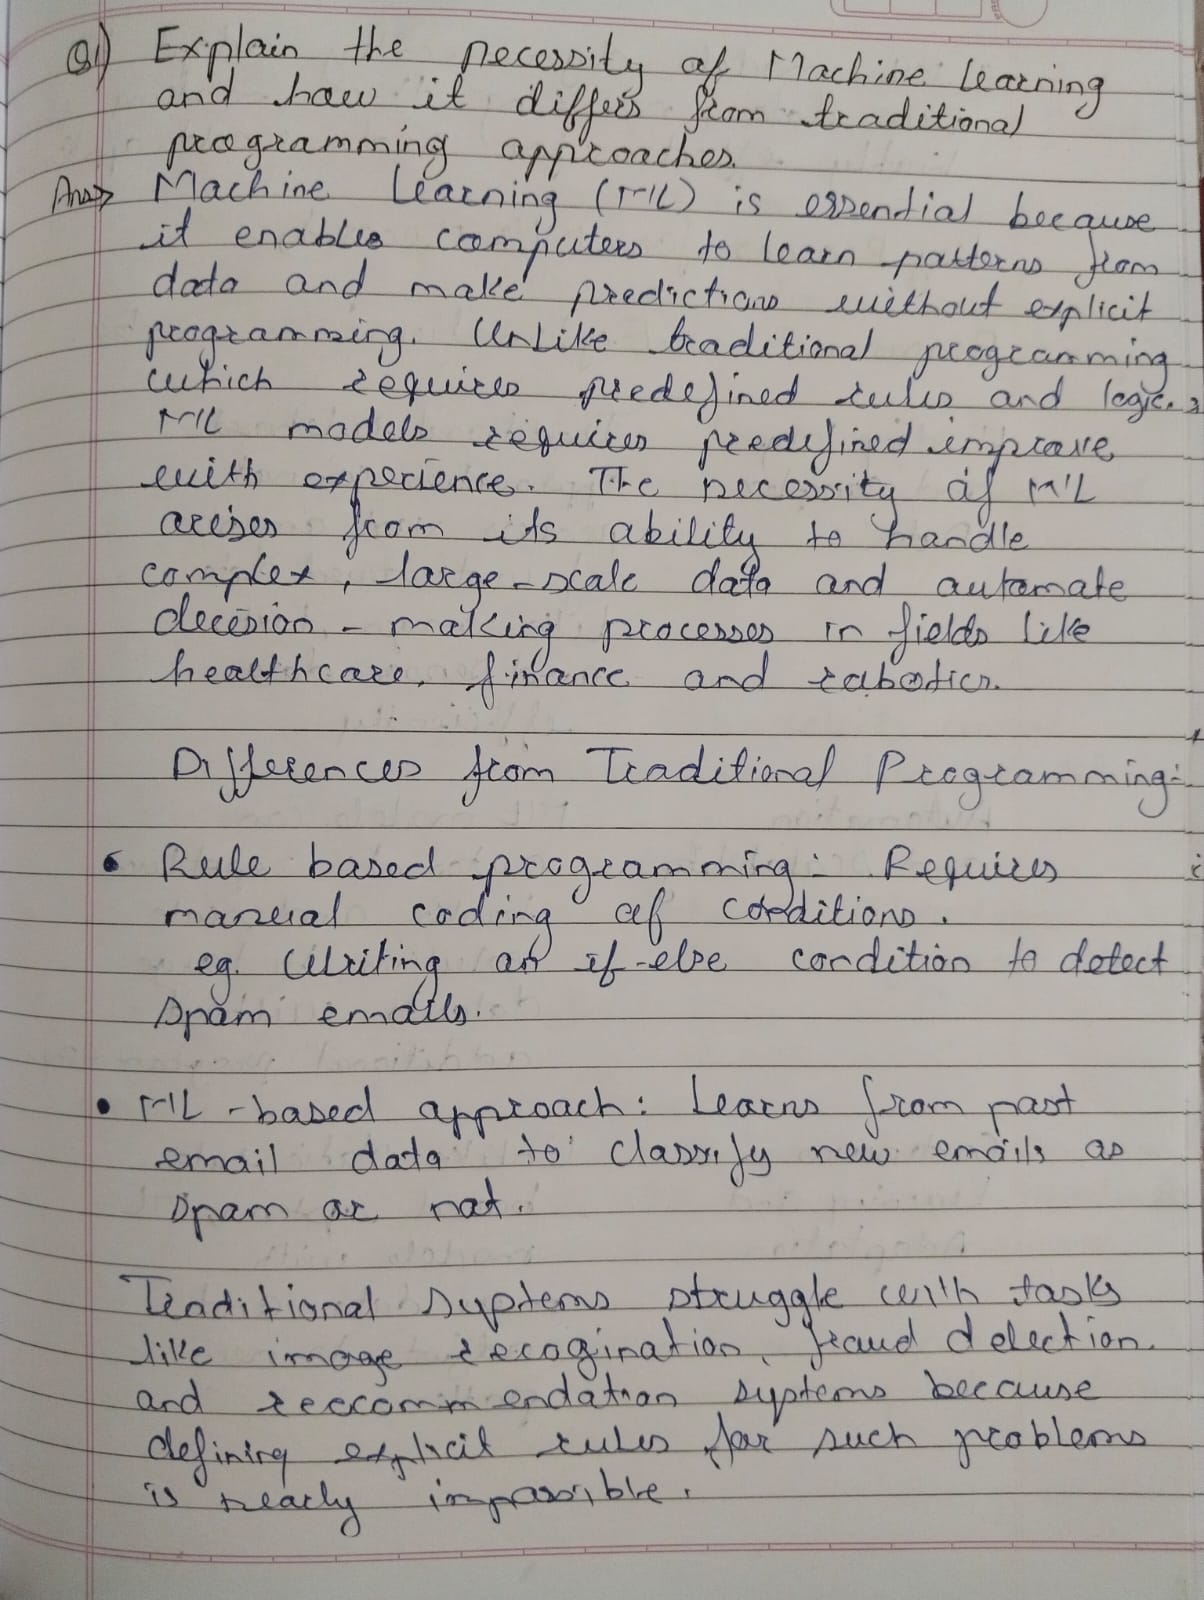 Q1) Explain the necessity of Machine Learning
and how it differs from traditional
programming approaches.
Ans> Machine Learning (ML) is essential because
it enables computers to learn patterns from
data and make predictions without explicit
programming. Unlike traditional programming
which requires predefined rules and logic,
ML models requires predefined improve
with experience. The necessity of ML
arises from its ability to handle
complex, large-scale data and automate
decision-making processes in fields like
healthcare, finance and robotics.
Differences from Traditional Programming:-
• Rule based programming: Requires
manual coding of conditions.
eg. Writing an if-else condition to detect
spam emails.
• ML-based approach: Learns from past
email data to classify new emails as
spam or not.
Traditional systems struggle with tasks
like image recogination, fraud detection
and reccommendation systems because
defining explicit rules for such problems
is nearly impossible.